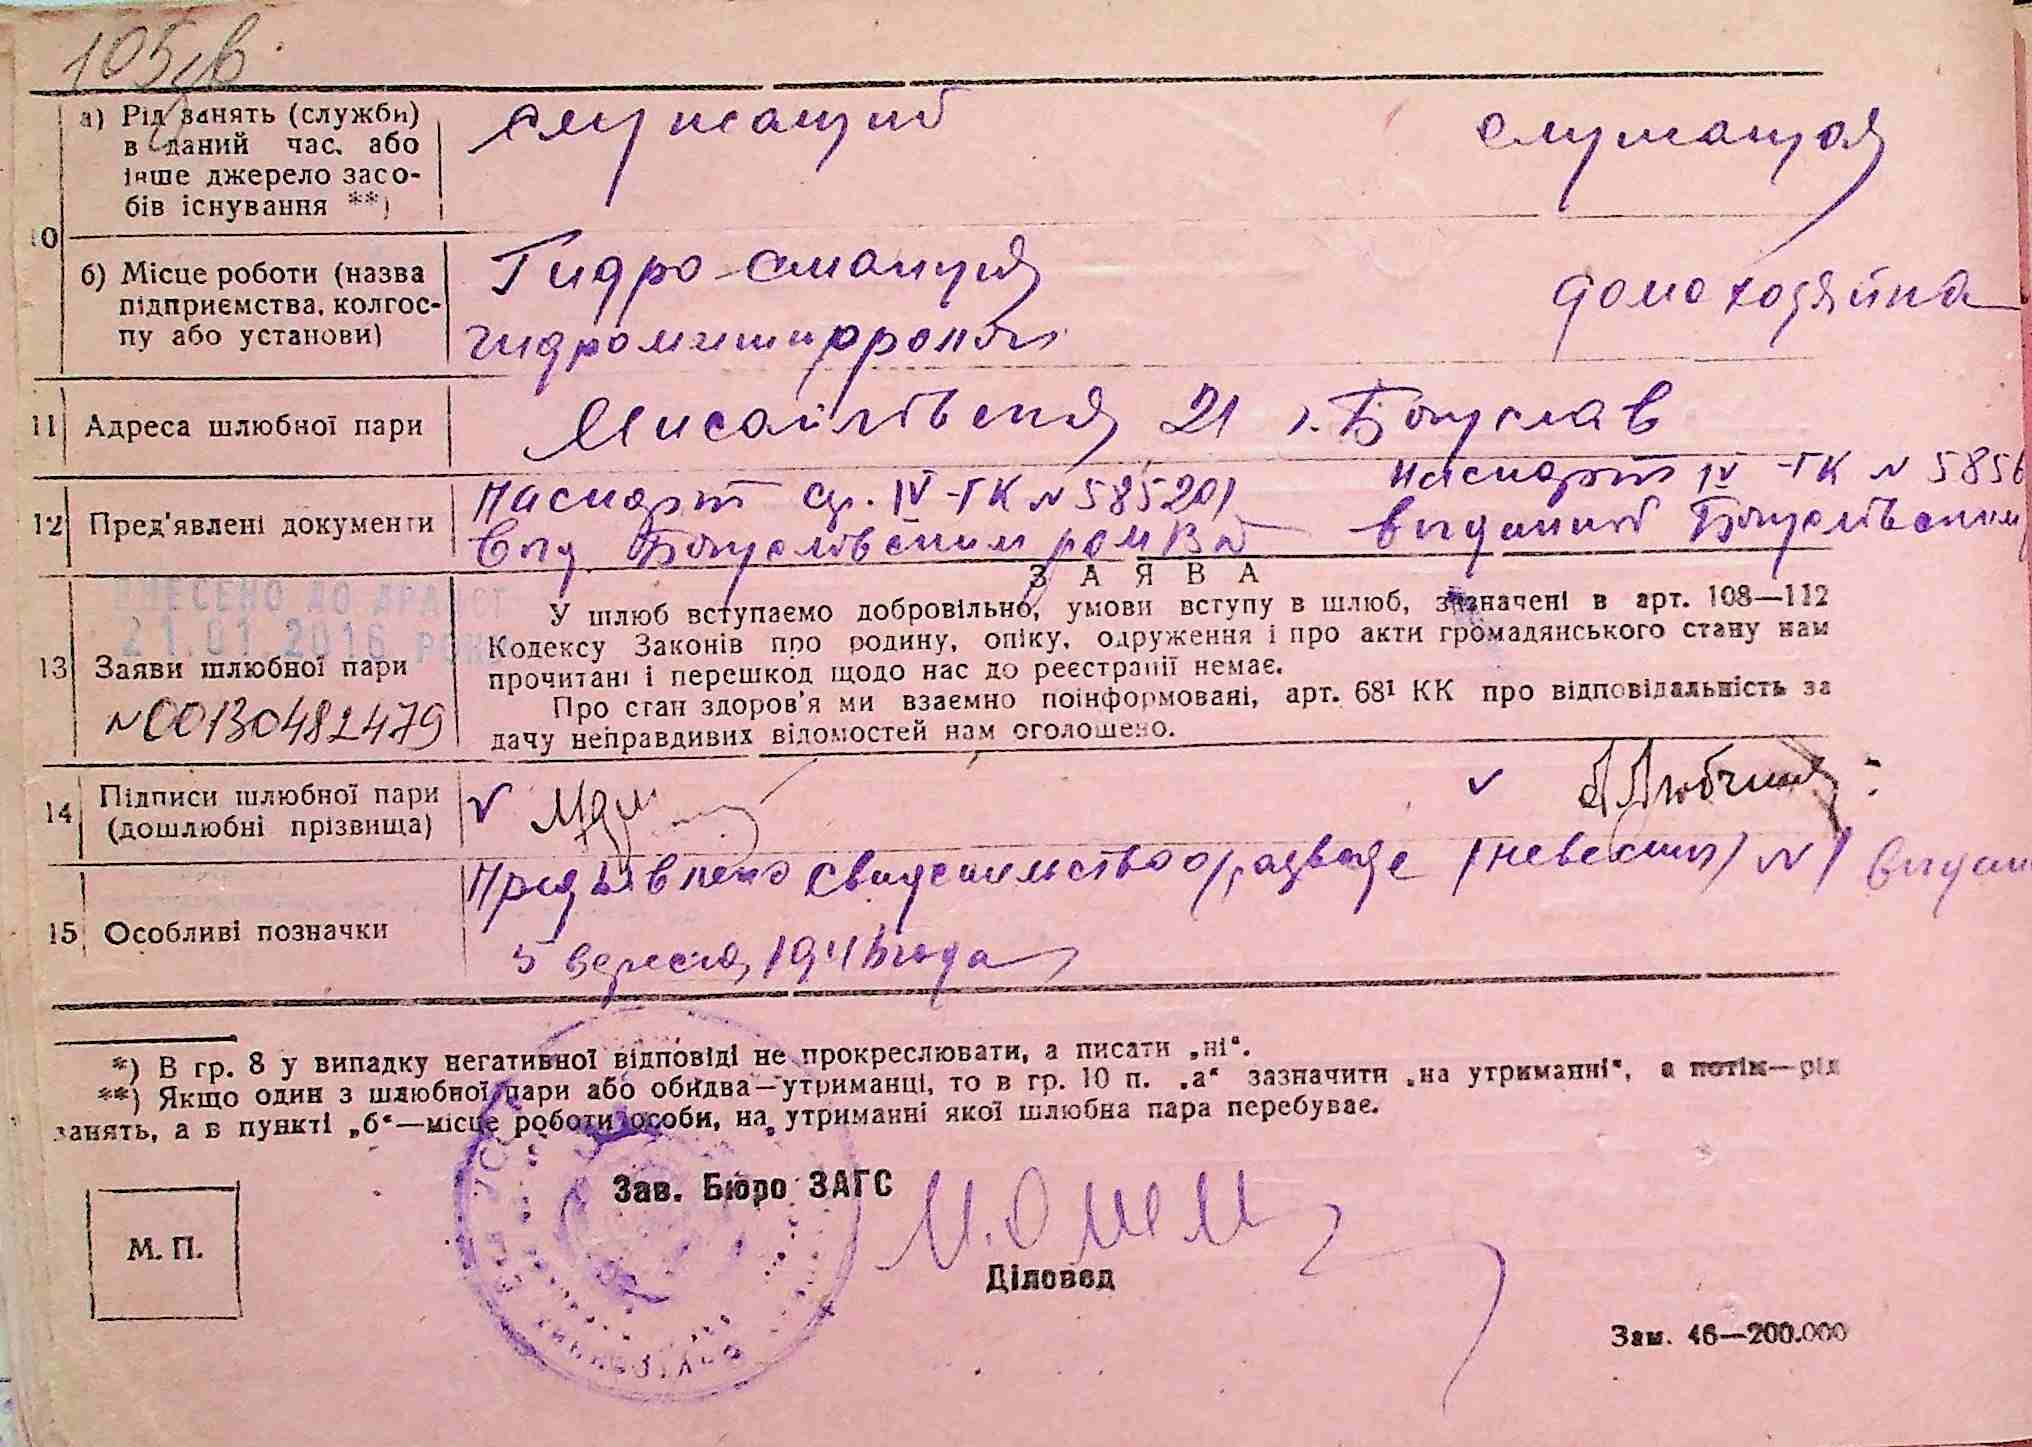 105
а) Рід занять (служби) в даний час, або інше джерело засобів існування **)
служащий
служащая
10
б) Місце роботи (назва підприємства, колгоспу або установи)
Гидро-станция
домохозяйка
11 Адреса шлюбної пари
Мисайлівська 21 г. Богуслав
12 Пред'явлені документи
Паспорт ср. IV-ГК N 585201
Выд. Богуславским
Паспорт IV-ГК N 5856
выданной Богуславским
ВНЕСЕНО ДО ДРАЦСГ
21.01.2016 РОКУ
13 Заяви шлюбної пари
N00130482479
ЗАЯВА
У шлюб вступаємо добровільно, умови вступу в шлюб, зазначені в арт. 108—112
Кодексу Законів про родину, опіку, одруження і про акти громадянського стану нам
прочитані і перешкод щодо нас до реєстрації немає.
Про стан здоров'я ми взаємно поінформовані, арт. 68¹ КК про відповідальність за
дачу неправдивих відомостей нам оголошено.
14 Підписи шлюбної пари (дошлюбні прізвища)
15 Особливі позначки
Предъявлено свидетельство о разводе (невесты) N 1
5 вересня года
*) В гр. 8 у випадку негативної відповіді не прокреслювати, а писати „ні“.
**) Якщо один з шлюбної пари або обидва—утриманці, то в гр. 10 п. „а“ зазначити „на утриманні“, а потім—рід
занять, а в пункті „б“—місце роботи особи, на утриманні якої шлюбна пара перебуває.
Зав. Бюро ЗАГС
М. П.
Діловод
Зам. 46—200.000